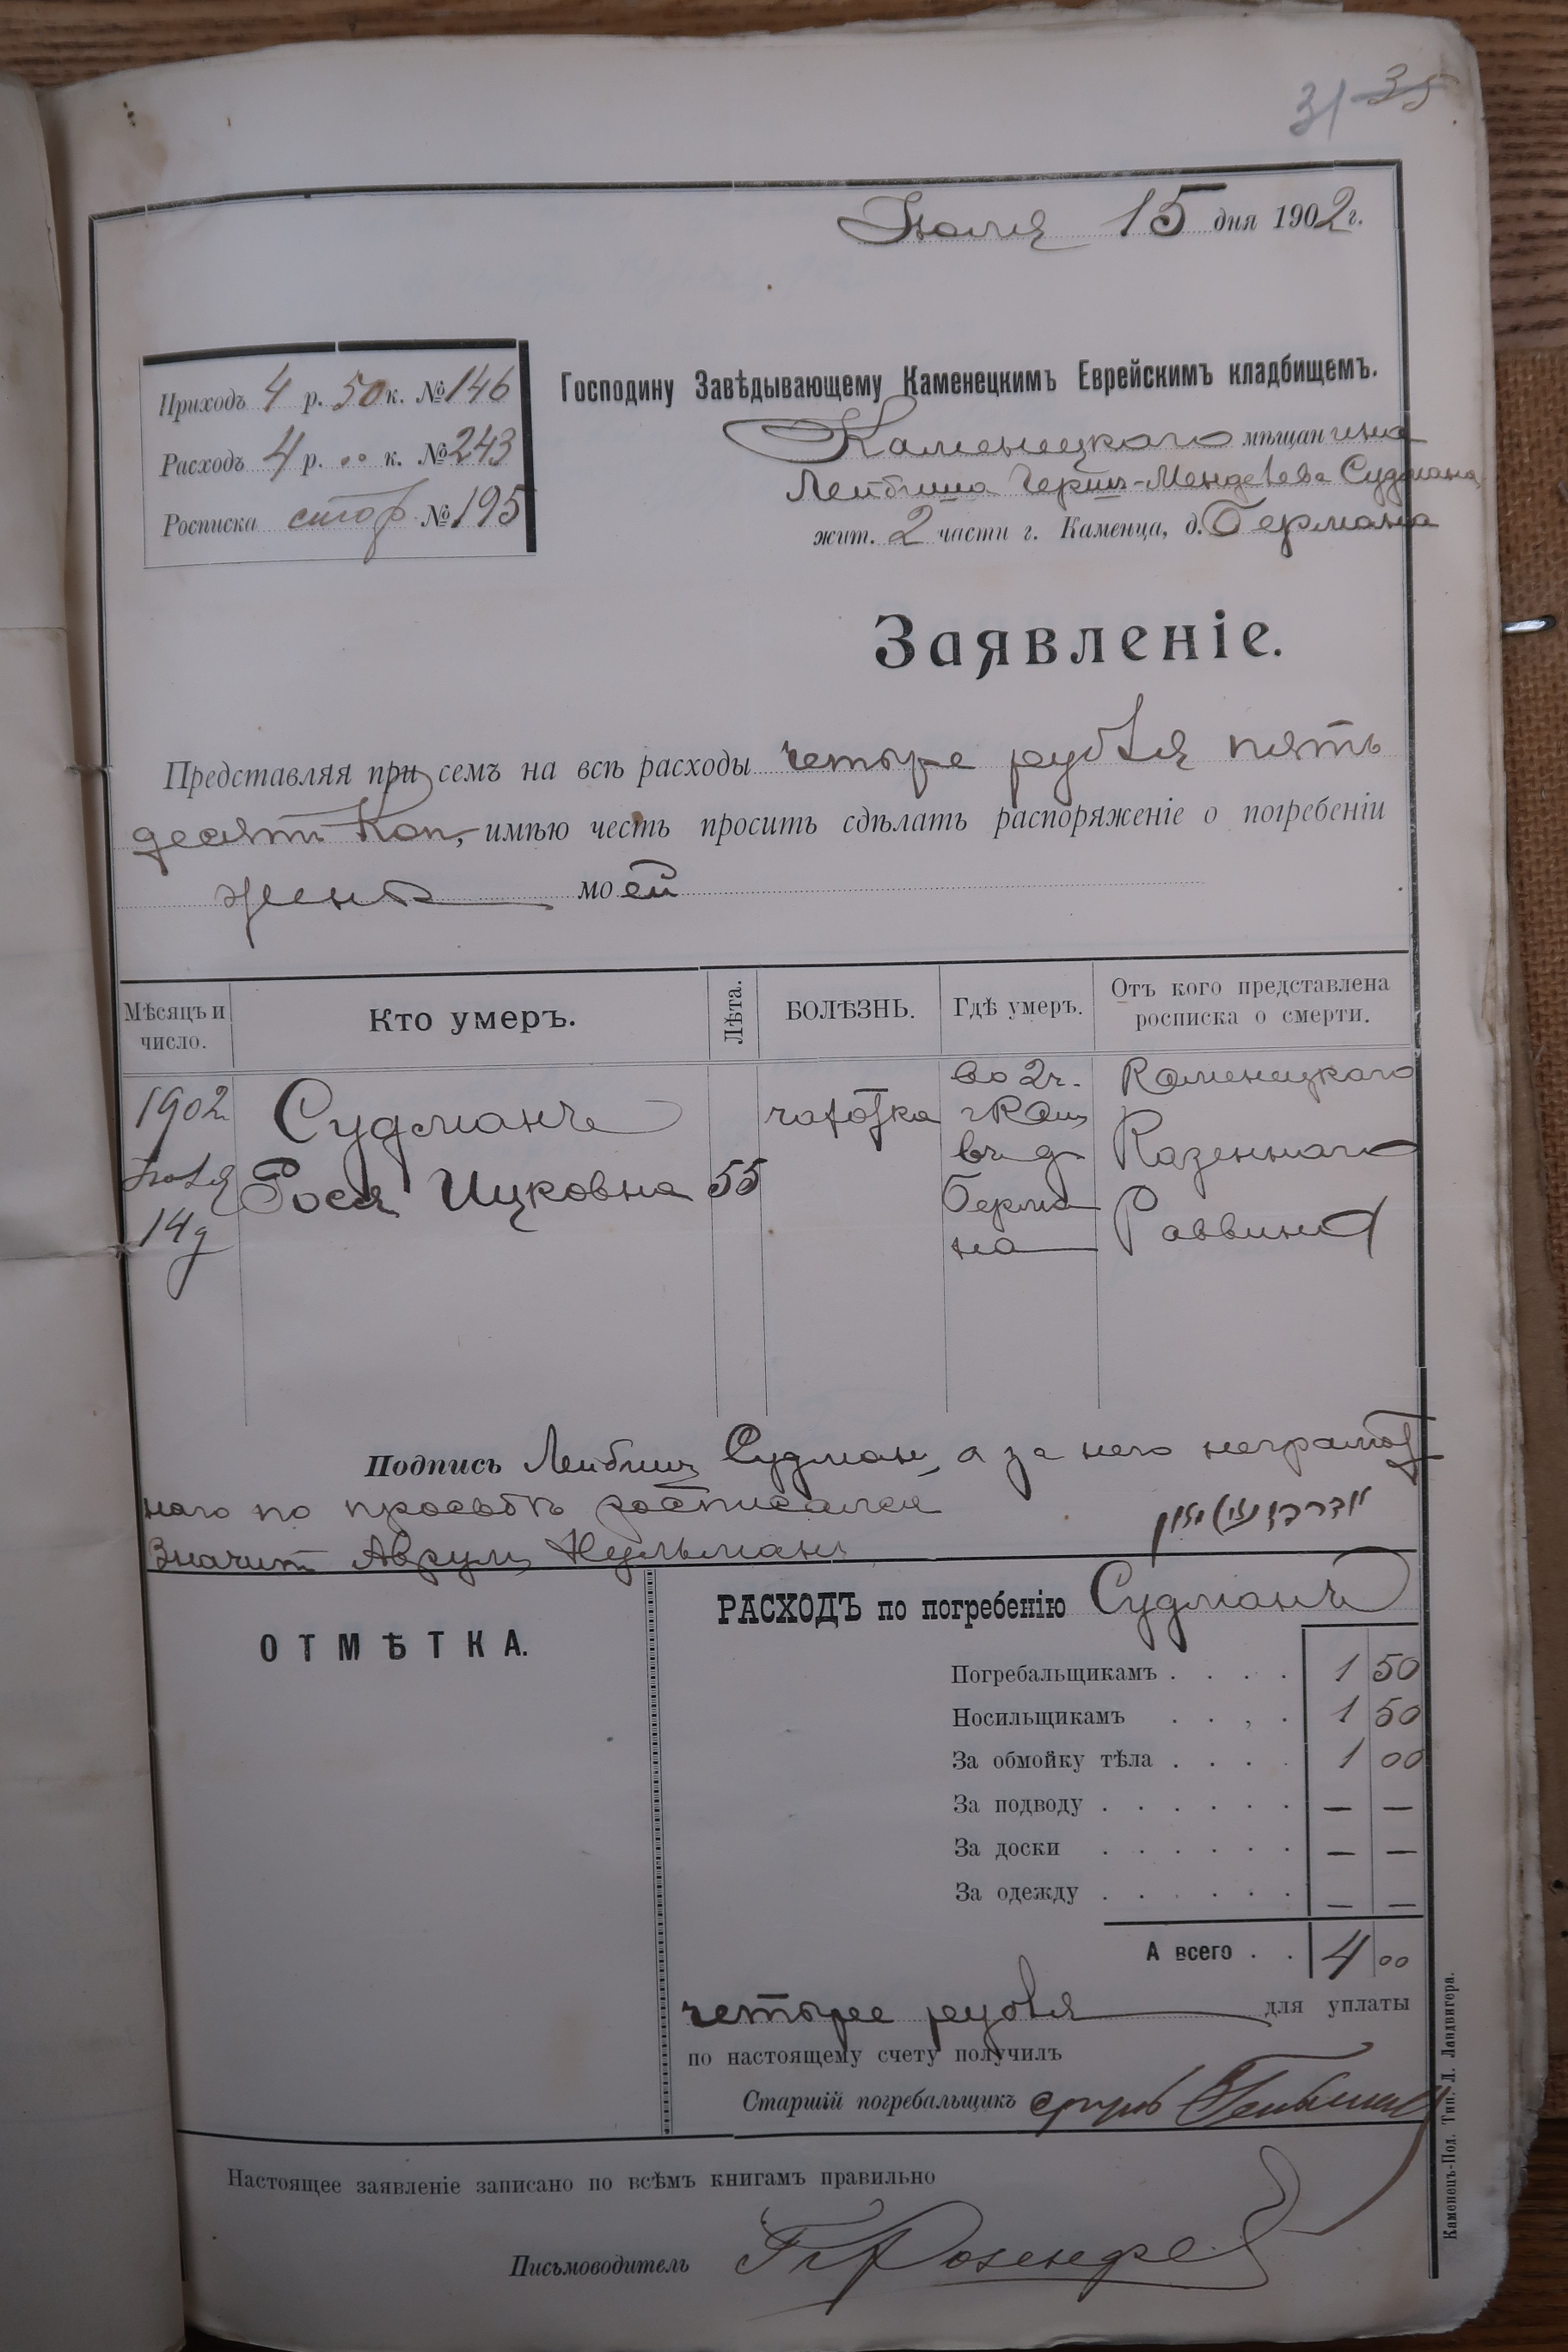 31 35
Іюля 15 дня 1902 г.
Приходъ 4 р. 50 к. № 146
Расходъ 4 р. .. к. № 243
Росписка стор № 195
Господину Завѣдывающему Каменецкимъ Еврейскимъ кладбищемъ.
Каменецкаго мѣщанина
Лейбиша Гершъ-Менделева Судмана
жит. 2 части г. Каменца, д. Бермана
Заявленіе.
Представляя при семъ на всѣ расходы четыре рубля пять
десятъ Коп, имѣю честь просить сдѣлать распоряженіе о погребеніи
жены моей
Мѣсяцъ и число.
Кто умеръ.
Лѣта.
БОЛѢЗНЬ.
Гдѣ умеръ.
Отъ кого представлена росписка о смерти.
1902
Іюля
14 д
Судманъ
Рося Ицковна
55
чахотка
во 2 ч.
г Кам
въ д
Берма
на
Каменецкаго
Казеннаго
Раввина
Подпись Лейбиш Судман, а за него неграмот
наго по просьбѣ росписался
Значит Аврум
РАСХОДЪ по погребенію Судманъ
ОТМѢТКА.
Погребальщикамъ . . . . 1 50
Носильщикамъ . . , . 1 50
За обмойку тѣла . . . . 1 00
За подводу . . . . . . — —
За доски . . . . . . — —
За одежду . . . . . . — —
А всего . . 4 00
четырее рубля для уплаты
по настоящему счету получилъ
Старшій погребальщикъ
Настоящее заявленіе записано по всѣмъ книгамъ правильно
Письмоводитель Розенфе
Каменецъ-Под. Тип. Л. Ландвигера.